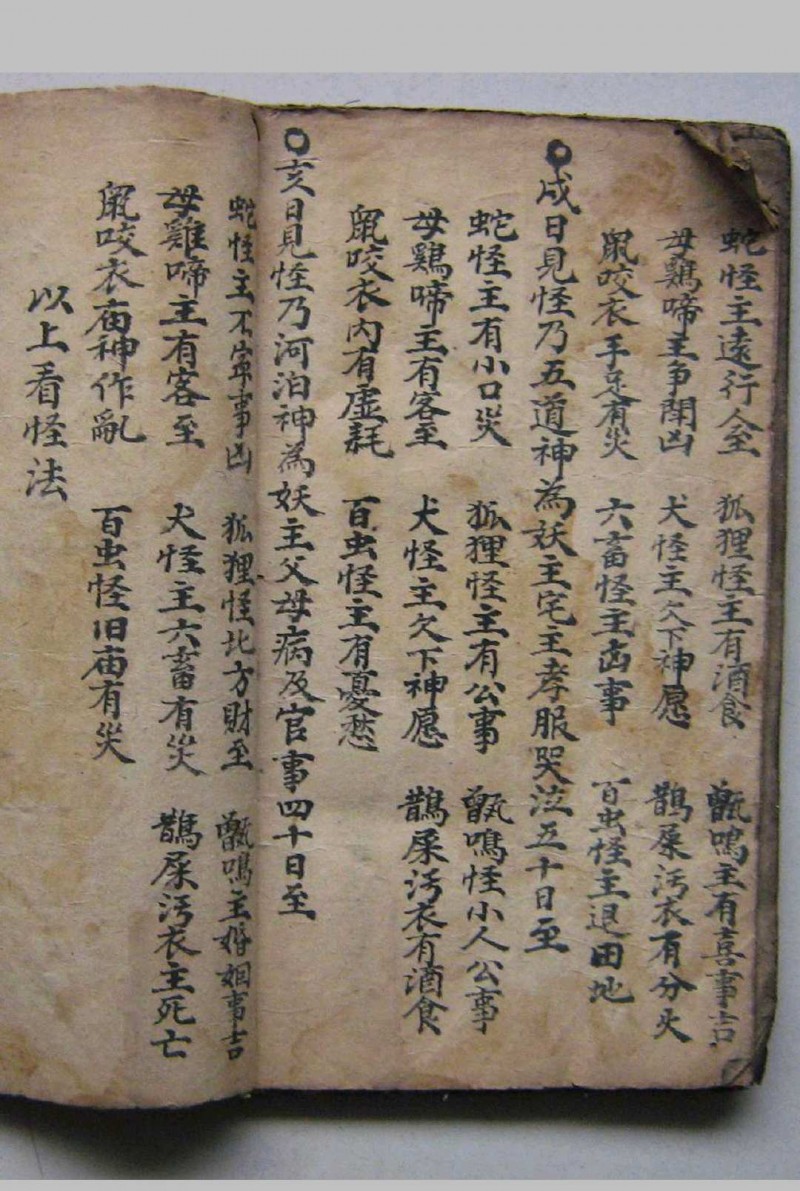 蛇怪主遠行人至　狐狸怪主有酒食　甑鳴主有喜事吉
母鷄啼主争鬧凶　犬怪主欠下神愿　鵲屎污衣有分火
鼠咬衣手足有災　六畜怪主凶事　百虫怪主退田地
〇戌日見怪乃五道神為妖主宅主孝服哭泣五十日至
蛇怪主有小口災　狐狸怪主有公事　甑鳴怪小人公事
母鷄啼主有客至　犬怪主欠下神愿　鵲屎污衣有酒食
鼠咬衣内有虚耗　百虫怪主有憂愁
〇亥日見怪乃河泊神為妖主父母病及官事四十日至
蛇怪主不寧事凶　狐狸怪北方財至　甑鳴主婚姻事吉
母雞啼主有客至　犬怪主六畜有災　鵲屎污衣主死亡
鼠咬衣庙神作亂　百虫怪旧庙有災
以上看怪法